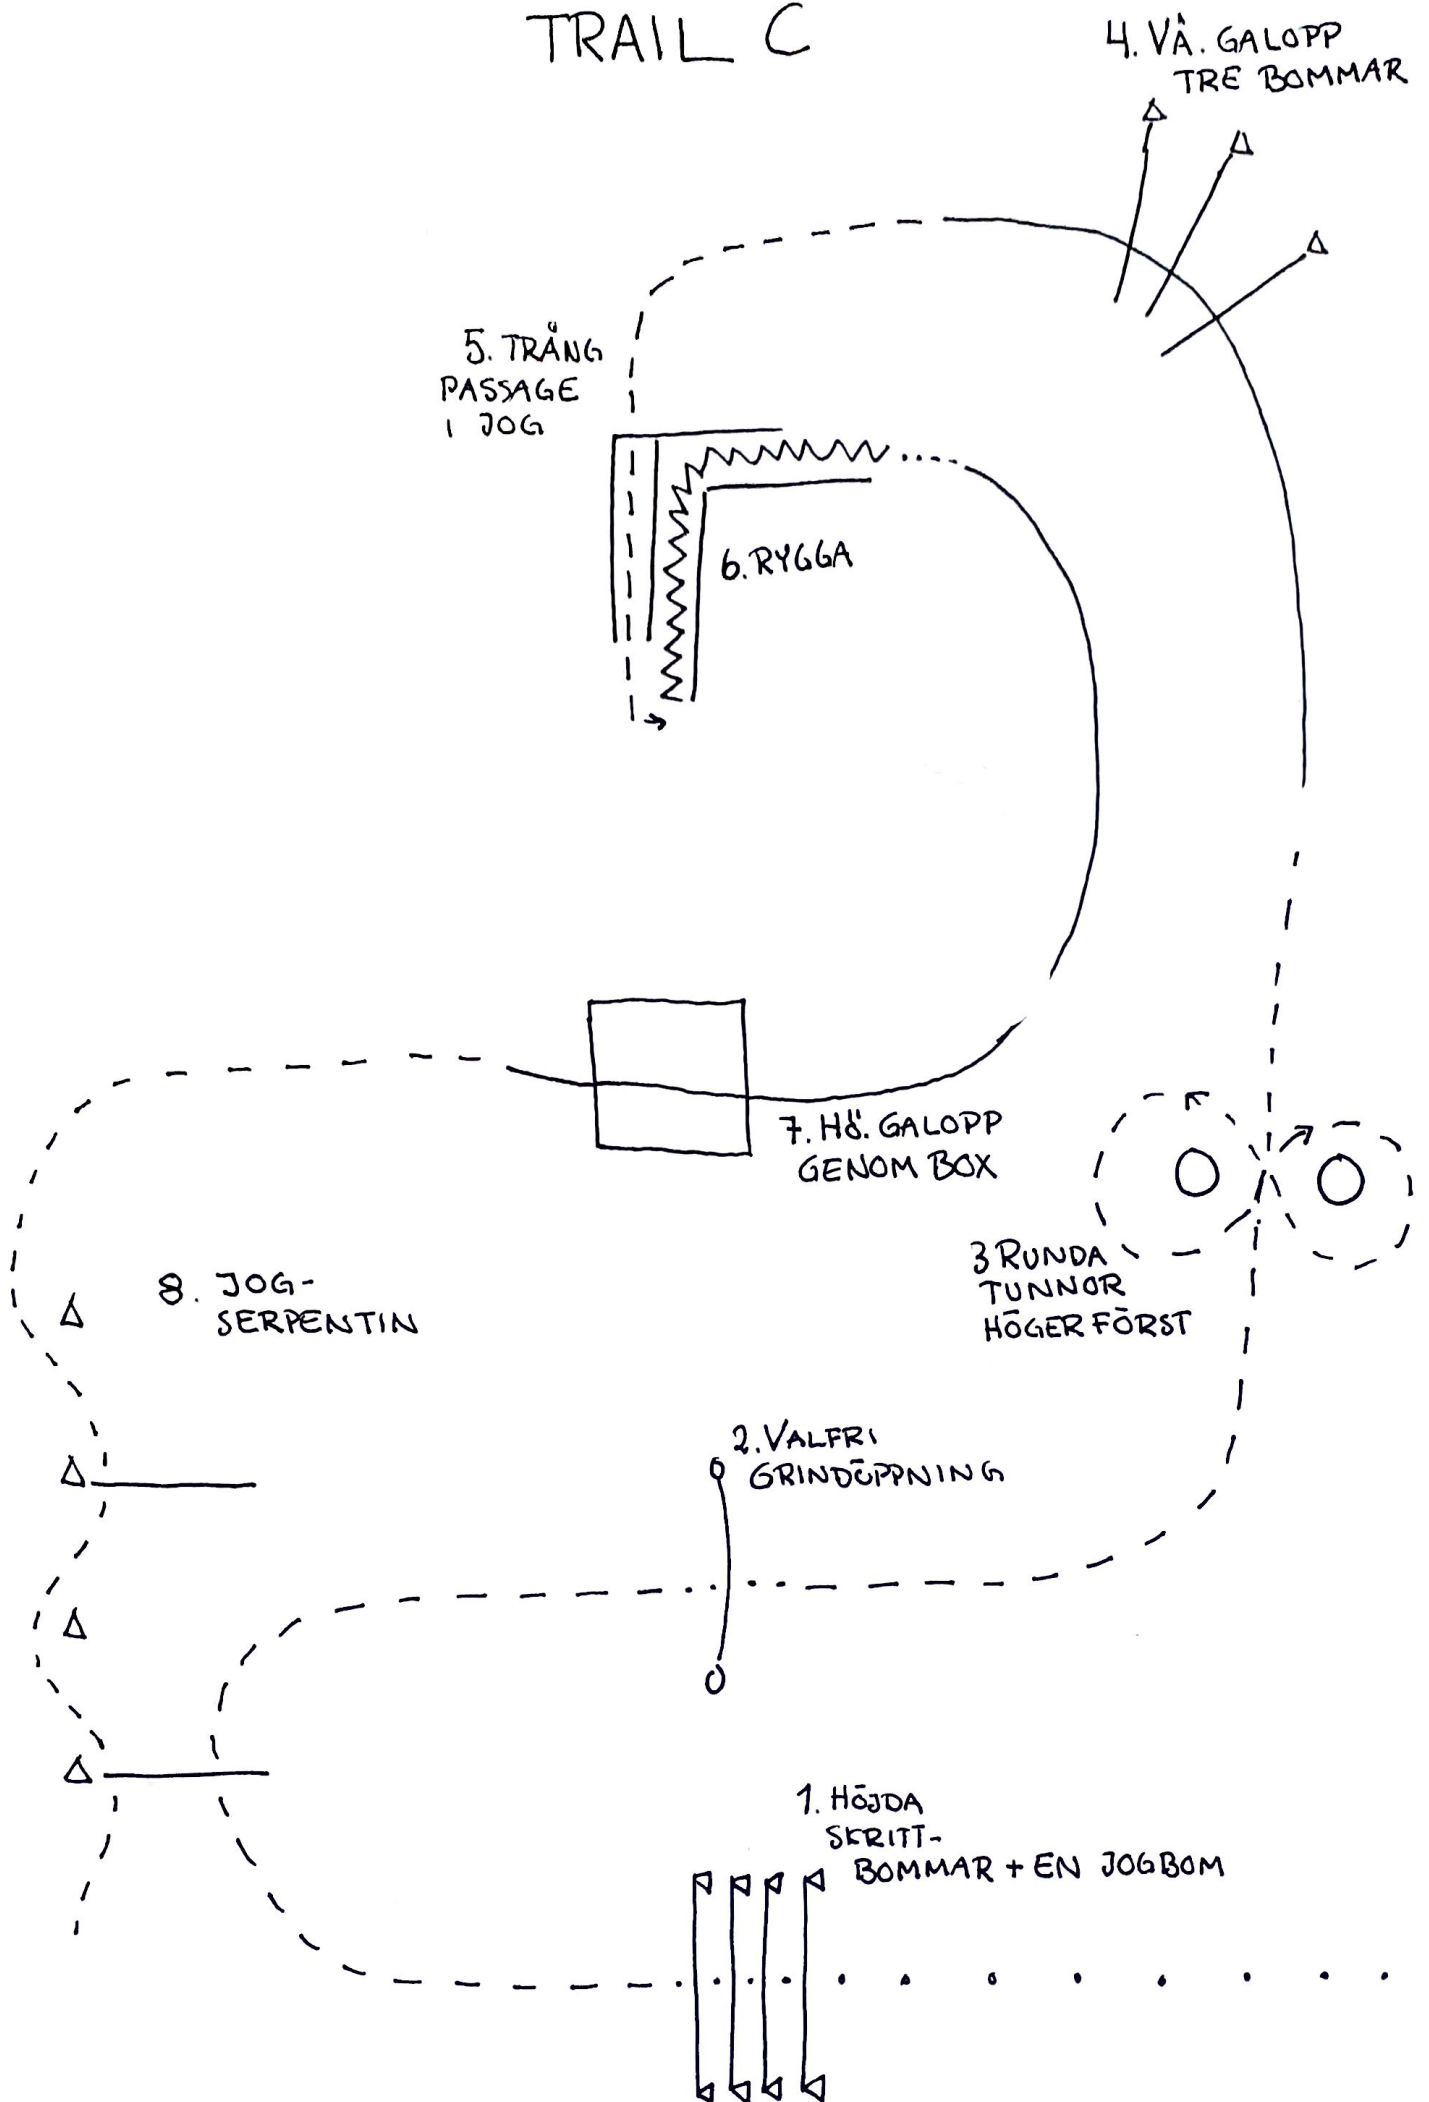 TRAIL C
4. VÄ. GALOPP
TRE BOMMAR
5. TRÅNG
PASSAGE
I JOG
6. RYGGA
7. HÖ. GALOPP
GENOM BOX
3 RUNDA
TUNNOR
HÖGER FÖRST
8. JOG-
SERPENTIN
2. VALFRI
GRINDÖPPNING
1. HÖJDA
SKRITT-
BOMMAR + EN JOGBOM